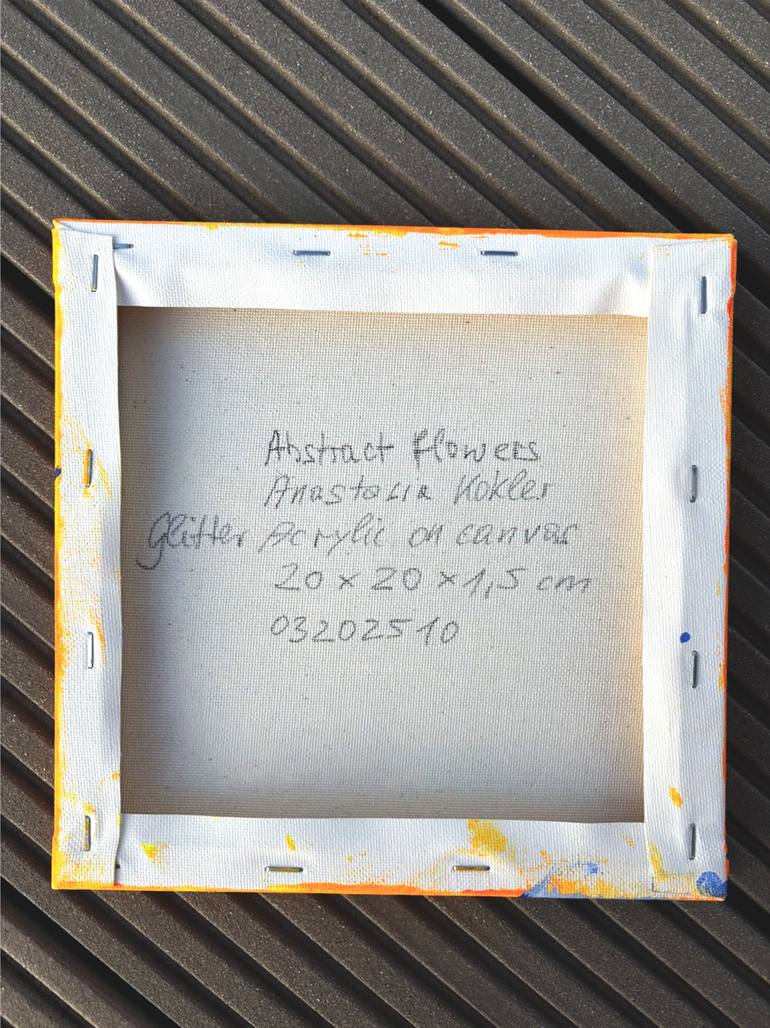 Abstract flowers
Anastasia Kokler
Glitter Acrylic on canvas
20 x 20 x 1,5 cm
03202510